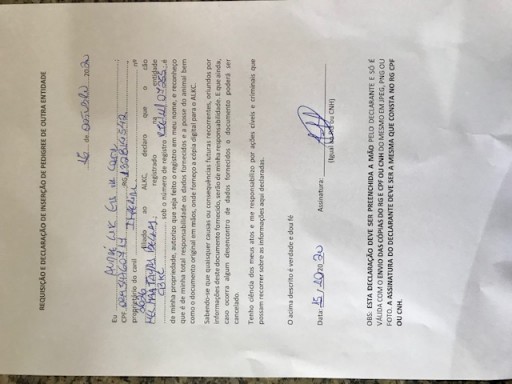 REQUISIÇÃO E DECLARAÇÃO DE INSERÇÃO DE PEDIGREE DE OUTRA ENTIDADE
de 2020
Eu
CPF RG
proprietário do canil nº
filiado ao ALKC, declaro que o cão
registrado entidade
CBKC sob o número de registro
de minha propriedade, autorizo que seja feito o registro em meu nome, e reconheço
que é de minha total responsabilidade os dados fornecidos e a posse do animal bem
como o documento original em mãos, onde forneço a cópia digital para o ALKC.
Sabendo-se que quaisquer causas ou consequências futuras recorrentes, oriundos por
informações deste documento fornecido, serão de minha responsabilidade. E que ainda,
caso ocorra algum desencontro de dados fornecidos o documento poderá ser
cancelado
Tenho ciência dos meus atos e me responsabilizo por ações cíveis e criminais que
possam recorrer sobre as informações aqui declaradas.
O acima descrito é verdade e dou fé
Data: 15/10/2020 Assinatura:
(Igual ao RG ou CNH)
OBS: ESTA DECLARAÇÃO DEVE SER PREENCHIDA A MÃO PELO DECLARANTE E SÓ É
VÁLIDA COM O ENVIO DAS CÓPIAS DO RG E CPF OU CNH DO MESMO EM JPEG, PNG OU
FOTO. A ASSINATURA DO DECLARANTE DEVE SER A MESMA QUE CONSTA NO RG CPF
OU CNH.